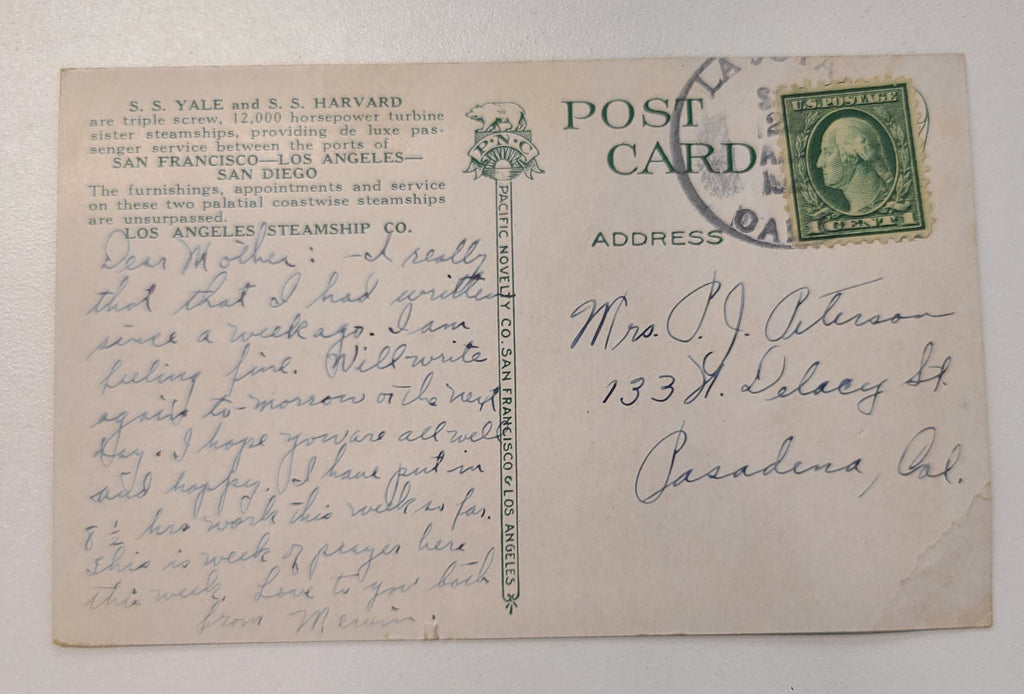 S. S. YALE and S. S. HARVARD
are triple screw, 12,000 horsepower turbine
sister steamships, providing de luxe pas-
senger service between the ports of
SAN FRANCISCO—LOS ANGELES—
SAN DIEGO
The furnishings, appointments and service
on these two palatial coastwise steamships
are unsurpassed.
LOS ANGELES STEAMSHIP CO.
Dear Mother: - I really
that that I had written
since a week ago. I am
feeling fine. Will write
again to-morrow or the next
day. I hope you are all well
and happy. I have put in
8 1/2 hrs work this week so far.
This is week of prayer here
this week. Love to you both
from Mervin.
P.N.C
PACIFIC NOVELTY CO. SAN FRANCISCO & LOS ANGELES
POST
CARD
ADDRESS
LA
U.S. POSTAGE
1 CENT 1
Mrs. P. J. Peterson
133 N. Delacy St.
Pasadena, Cal.